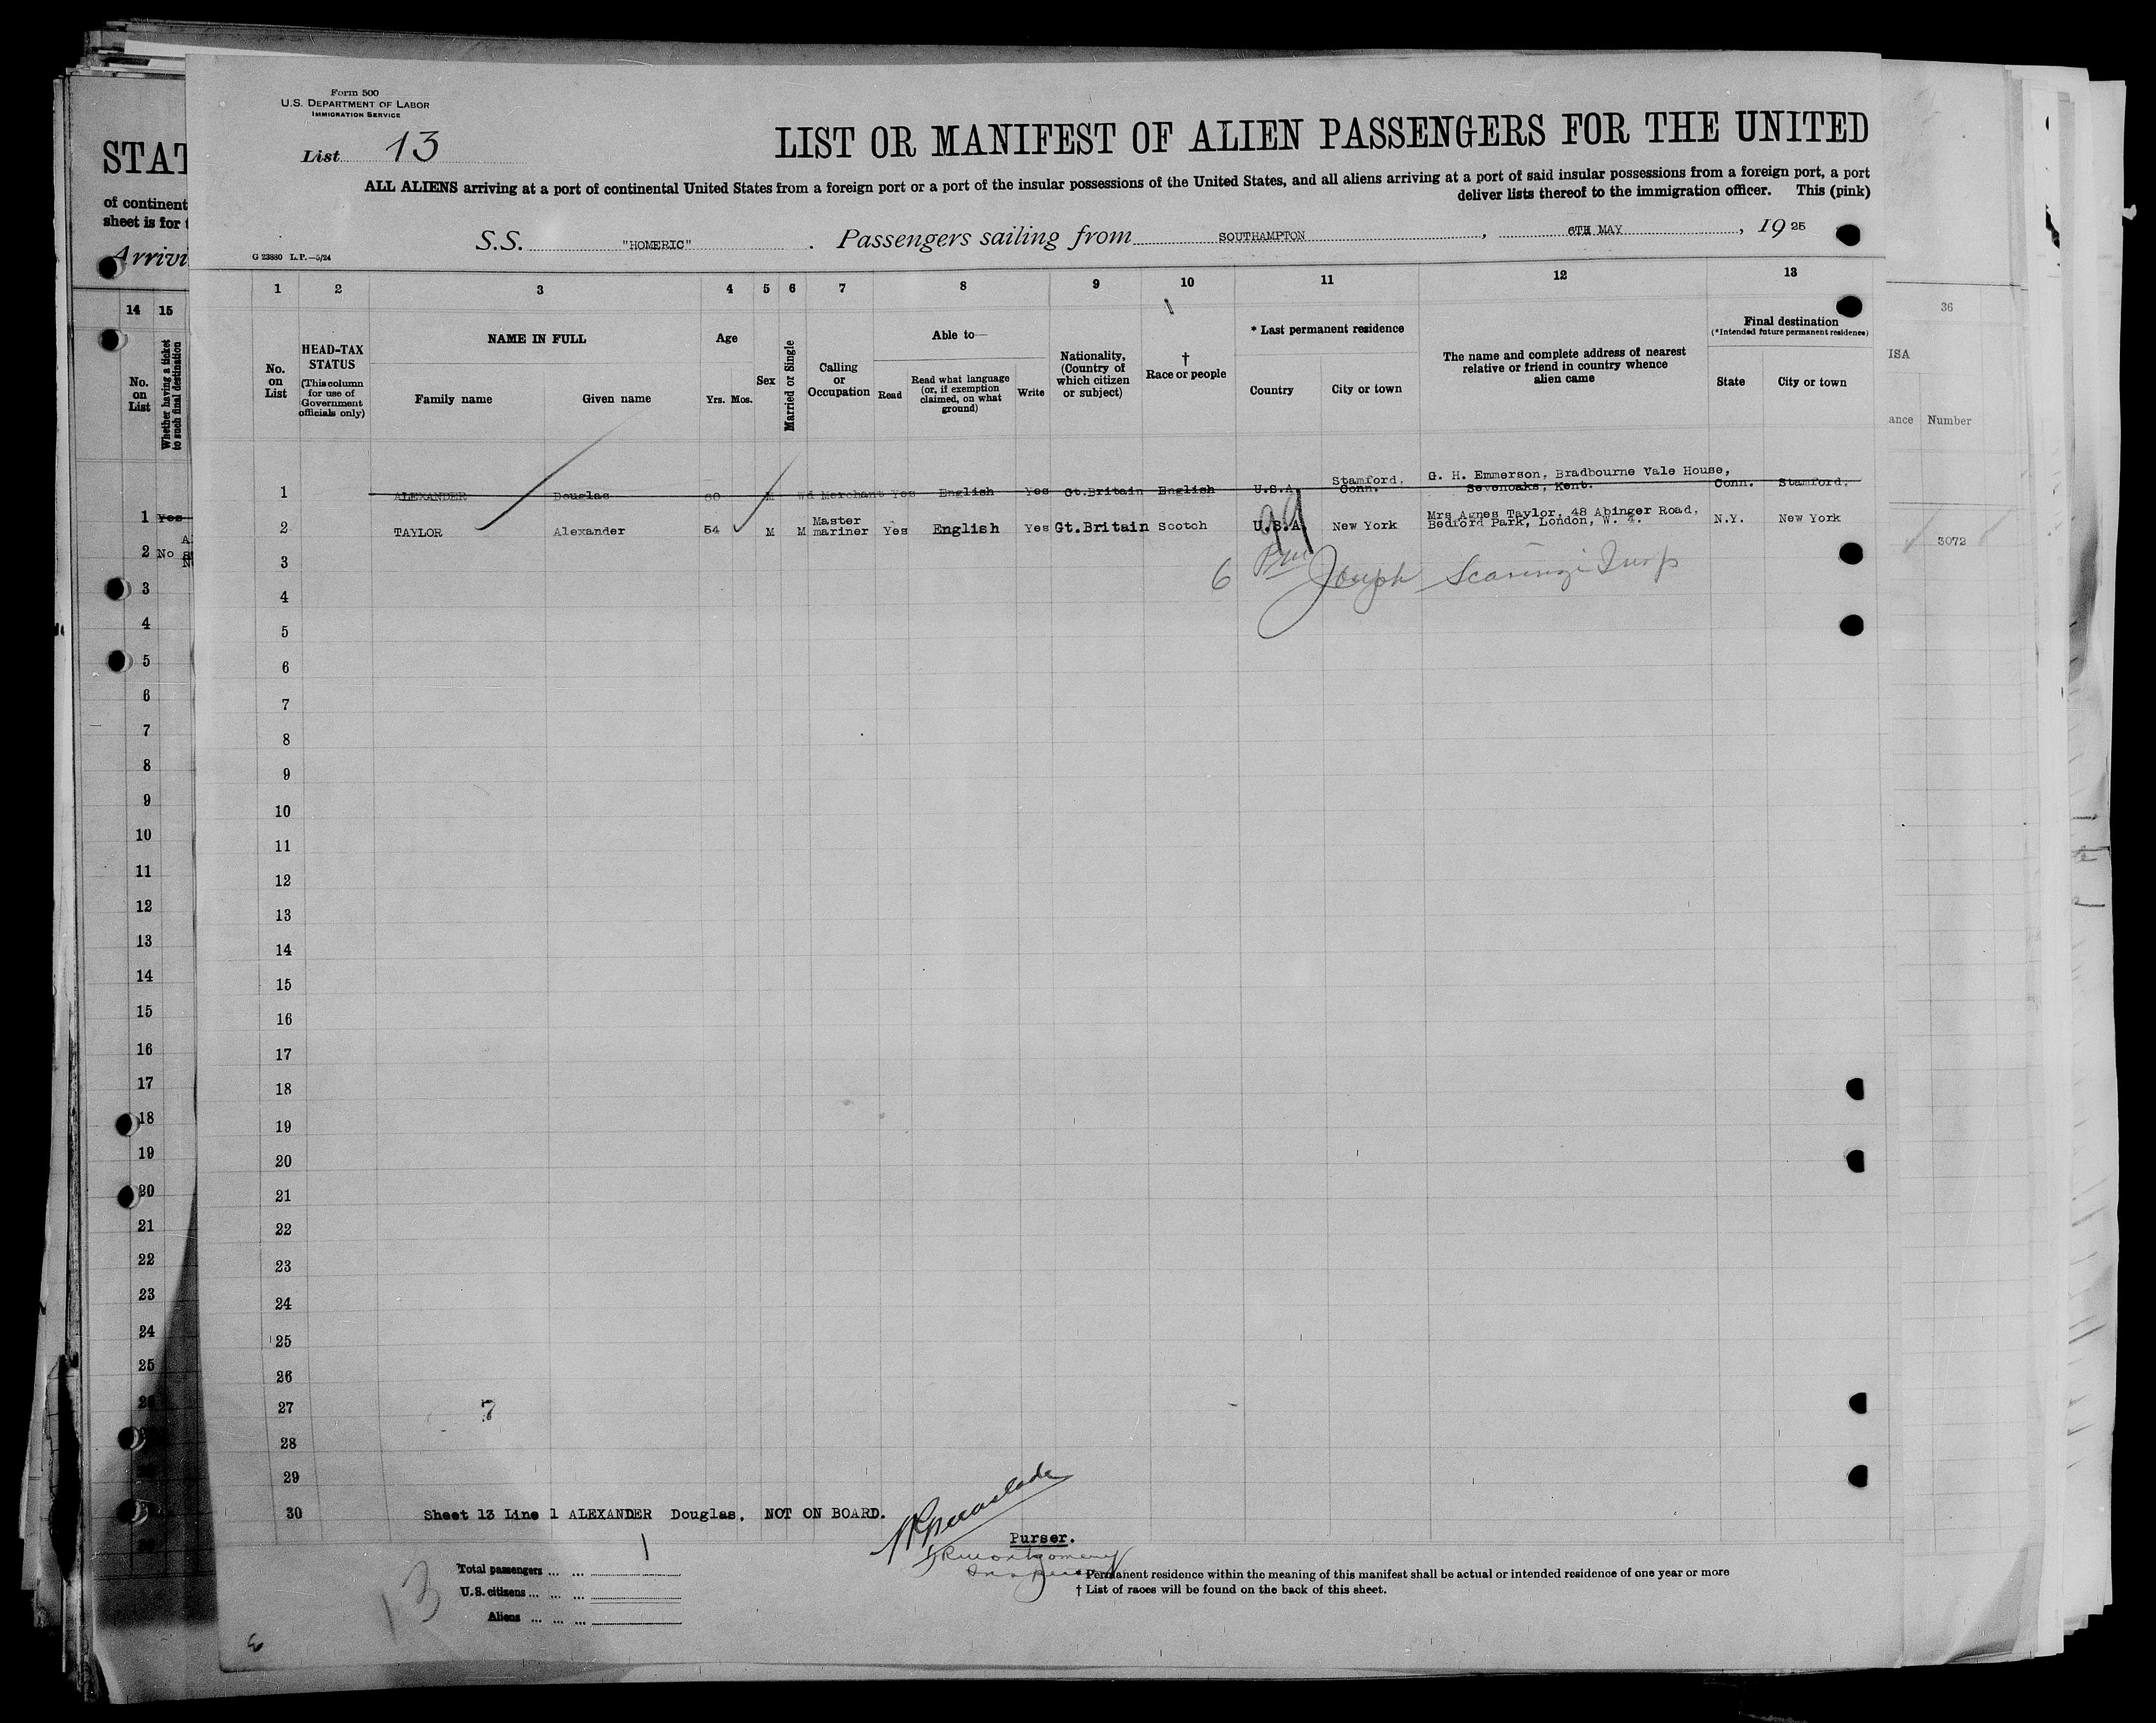 Form 500
U.S. DEPARTMENT OF LABOR
IMMIGRATION SERVICE
List 13
LIST OR MANIFEST OF ALIEN PASSENGERS FOR THE UNITED
ALL ALIENS arriving at a port of continental United States from a foreign port or a port of the insular possessions of the United States, and all aliens arriving at a port of said insular possessions from a foreign port, a port
deliver lists thereof to the immigration officer. This (pink)
S.S. "HOMERIC". Passengers sailing from SOUTHAMPTON, 6TH MAY, 1925
G 23880 L.P.—5/24
STAT
of continent
sheet is for
Arrivi
1 2 3 4 5 6 7 8 9 10 11 12 13
14 15
36
No. on List
HEAD-TAX STATUS (This column for use of Government officials only)
NAME IN FULL
Family name
Given name
Age
Yrs. Mos.
Sex
Married or Single
Calling or Occupation
Able to—
Read
Read what language (or, if exemption claimed, on what ground)
Write
Nationality, (Country of which citizen or subject)
† Race or people
* Last permanent residence
Country
City or town
The name and complete address of nearest relative or friend in country whence alien came
Final destination
(*Intended future permanent residence)
State
City or town
No. on List
Whether having a ticket to such final destination
ISA
ance Number
1 ALEXANDER Douglas 60 M Wd Merchant Yes English Yes Gt.Britain English U.S.A. Stamford, Conn. G. H. Emmerson, Bradbourne Vale House, Sevenoaks, Kent. Conn. Stamford.
2 TAYLOR Alexander 54 M M Master mariner Yes English Yes Gt.Britain Scotch U.S.A. New York Mrs Agnes Taylor, 48 Abinger Road, Bedford Park, London, W. 4. N.Y. New York
1 Yes
2 No
3072
6 Joseph
3
4
5
6
7
8
9
10
11
12
13
14
15
16
17
18
19
20
21
22
23
24
25
26
27 7
28
29
30
Sheet 13 Line 1 ALEXANDER Douglas. NOT ON BOARD.
Purser.
1
Total passengers ... ...
U.S. citizens ... ... ...
Aliens ... ... ...
13
* Permanent residence within the meaning of this manifest shall be actual or intended residence of one year or more
† List of races will be found on the back of this sheet.